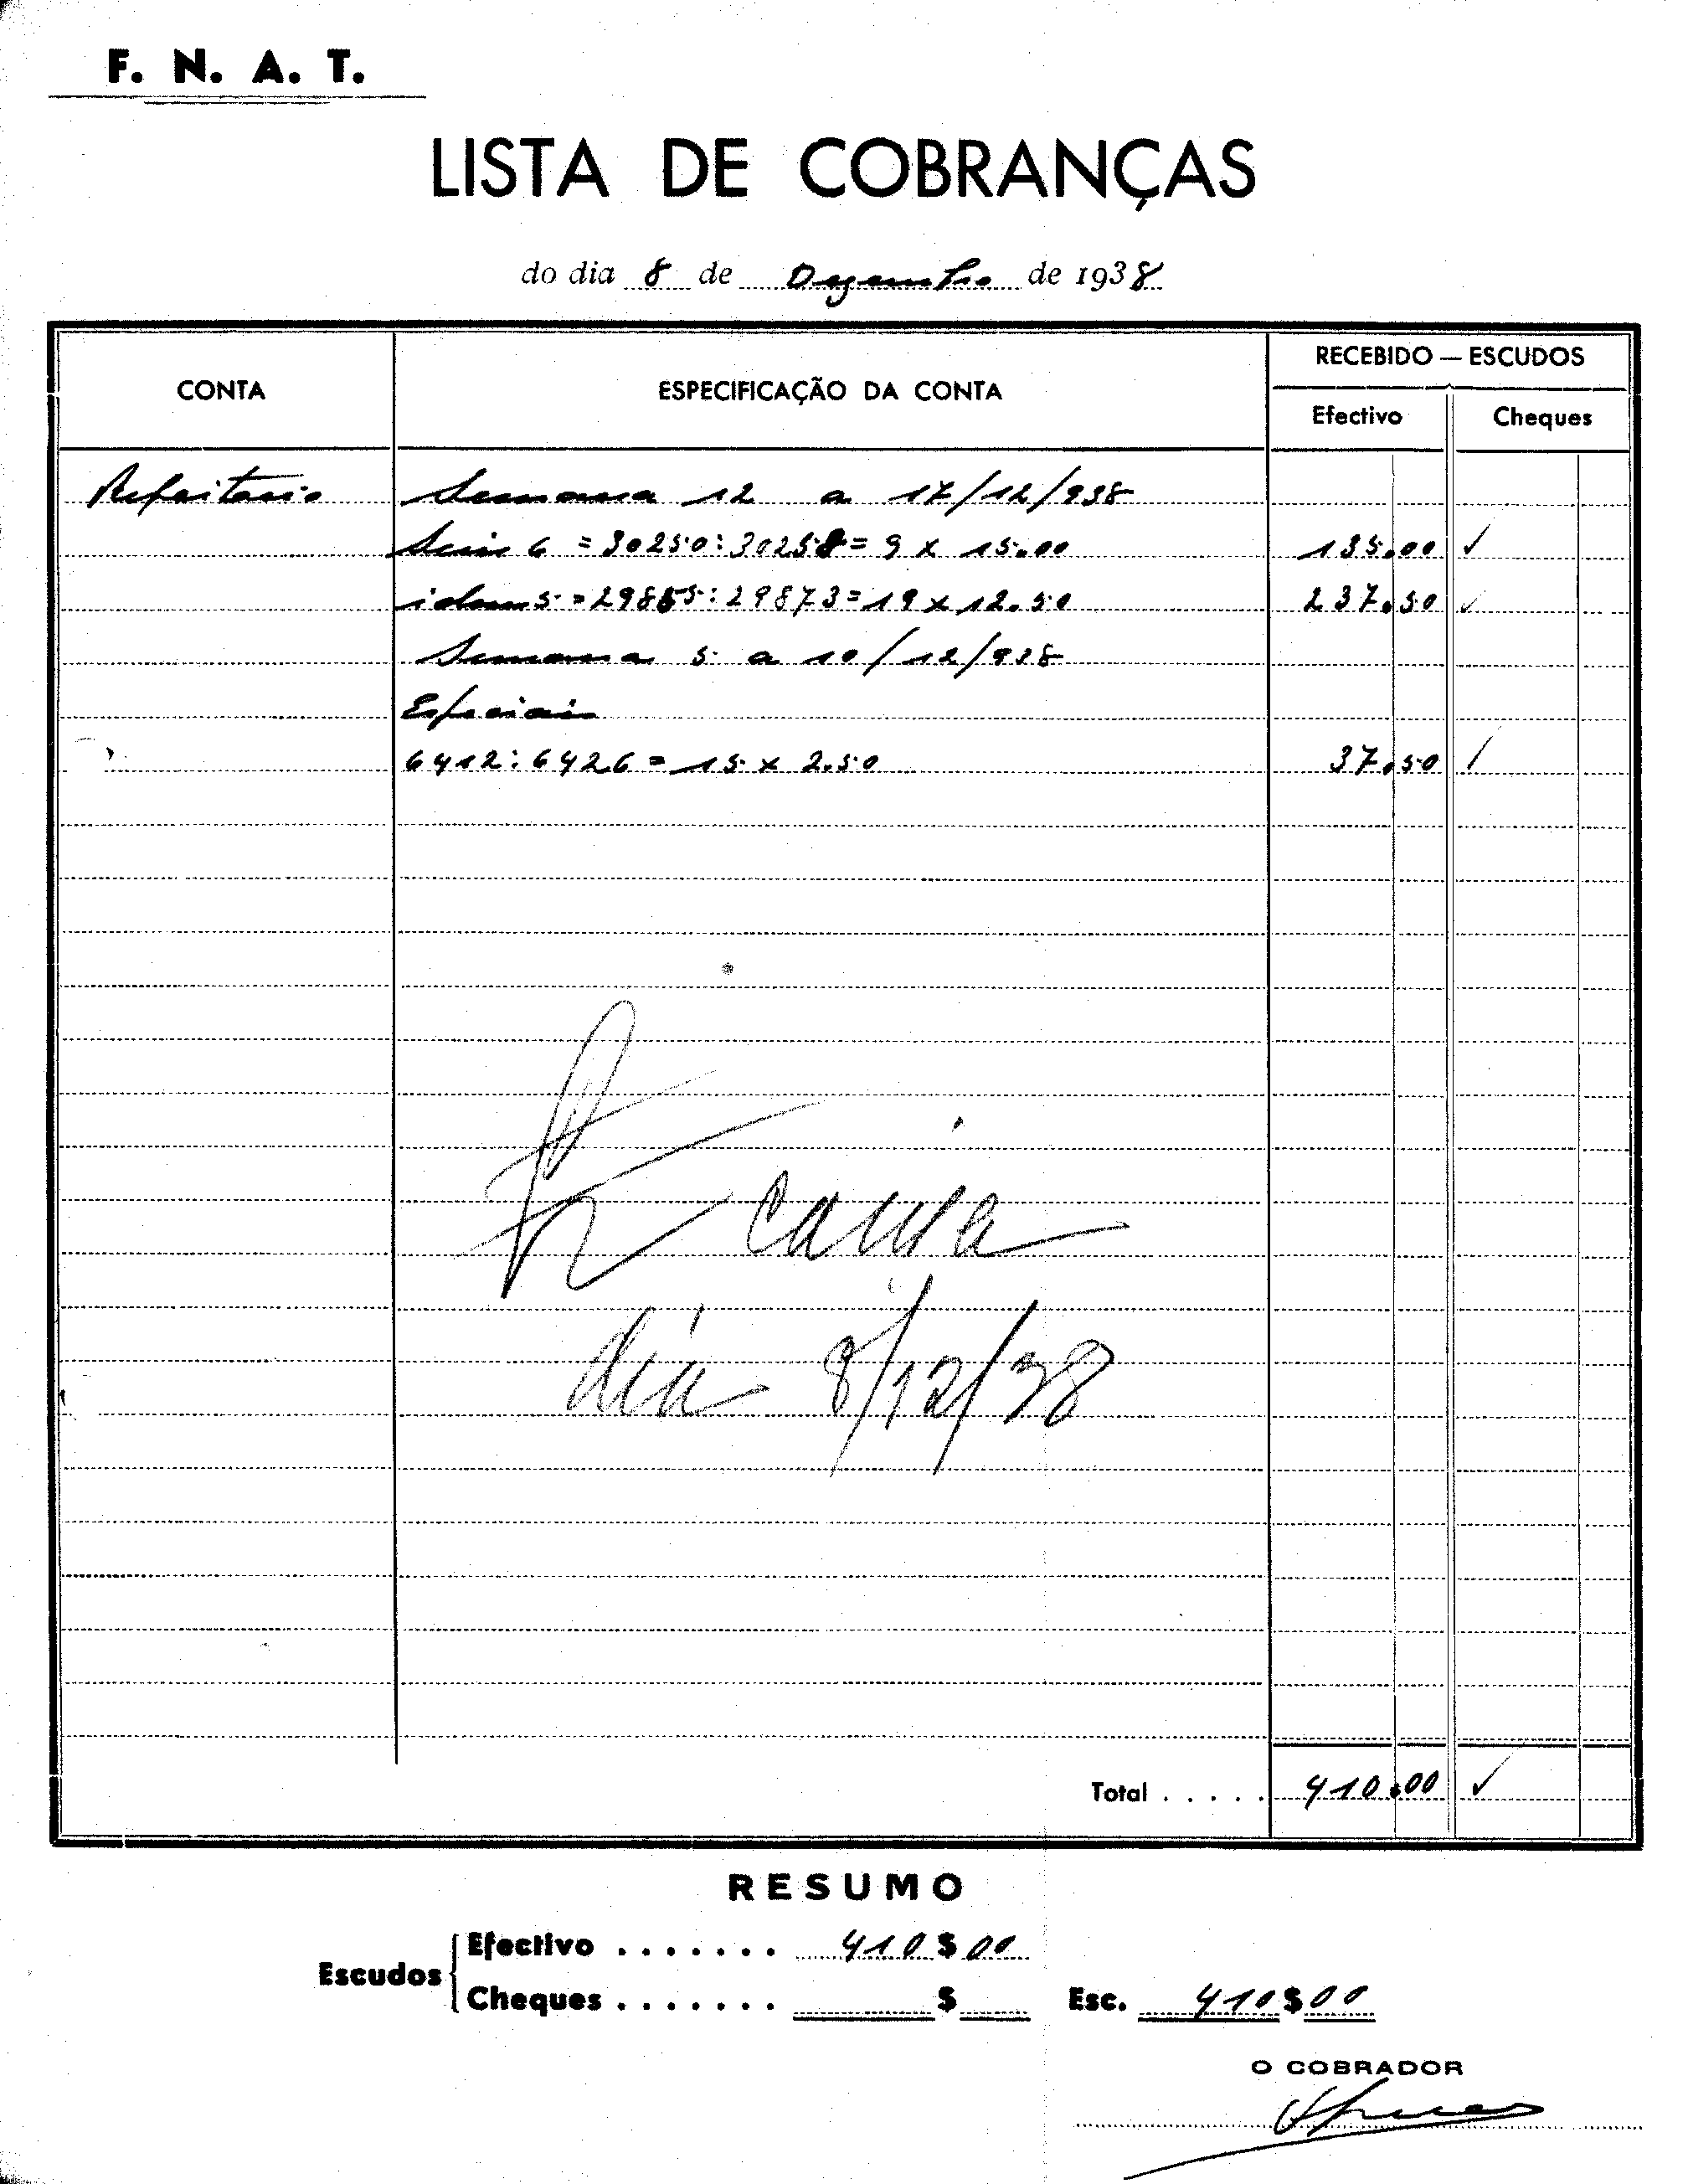 F. N. A. T.
LISTA DE COBRANÇAS
do dia 8 de Dezembro de 1938
CONTA
ESPECIFICAÇÃO DA CONTA
RECEBIDO — ESCUDOS
Efectivo
Cheques
Refeitorio Semana 12 a 17/12/938
Serie 6 = 30250:30258 = 9 x 15.00 135.00 ✓
idem 5 = 29855:29873 = 19 x 12.50 237.50 ✓
Semana 5 a 10/12/938
Especiais
6412:6426 = 15 x 2.50 37.50 ✓
Caixa
dia 8/12/38
Total . . . . . 410.00 ✓
RESUMO
Escudos
Efectivo . . . . . . . 410$00
Cheques . . . . . . . $
Esc. 410$00
O COBRADOR